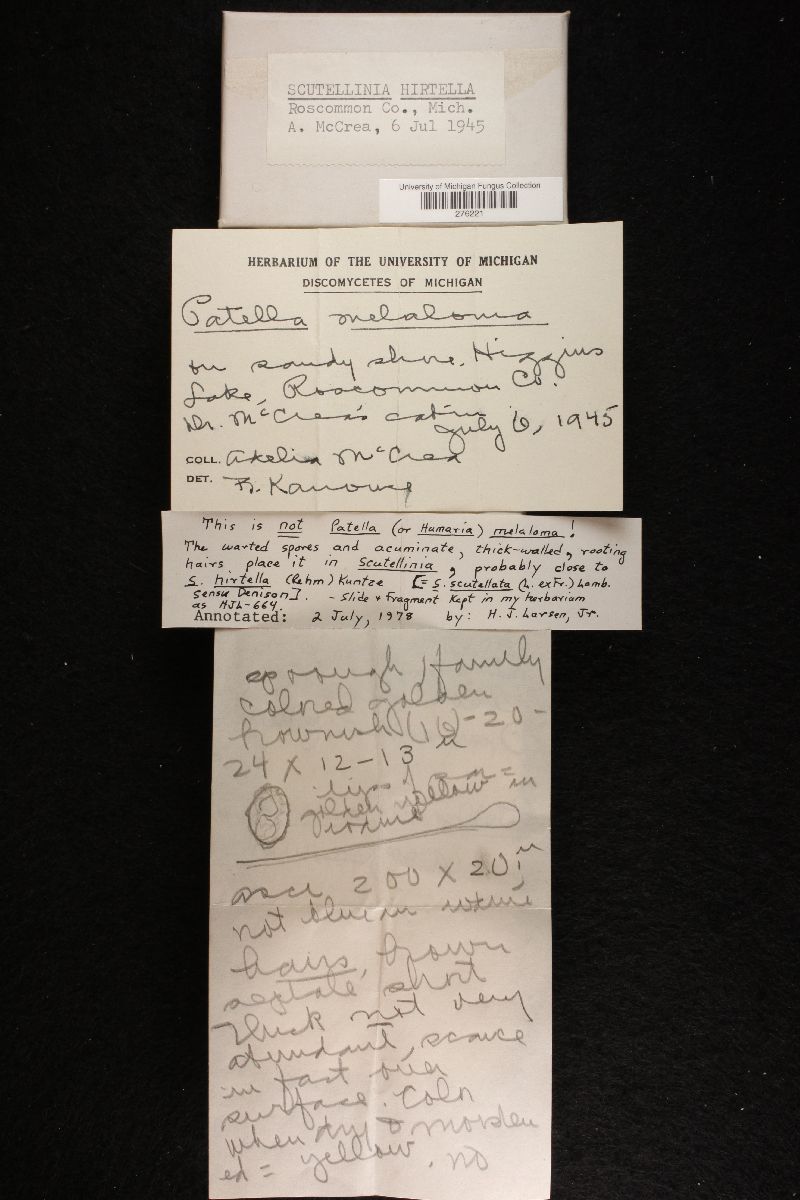 SCUTELLINIA HIRTELLA
Roscommon Co., Mich.
A. McCrea, 6 Jul 1945
University of Michigan Fungus Collection
276221
HERBARIUM OF THE UNIVERSITY OF MICHIGAN
DISCOMYCETES OF MICHIGAN
Patella melaloma
on sandy shore, Higgins
Lake, Roscommon Co.
Dr. McCrea's cabin
July 6, 1945
COLL. Adelia McCrea
DET. B. Kanouse
This is not Patella (or Humaria) melaloma!
The warted spores and acuminate, thick-walled, rooting
hairs place it in Scutellinia, probably close to
S. hirtella (Rehm) Kuntze [= S. scutellata (L. ex Fr.) Lamb.
sensu Denison]. - Slide + Fragment kept in my herbarium
as HJL-664.
Annotated: 2 July, 1978 by: H. J. Larsen, Jr.
sp rough, 
colored golden
brownish (16)-20-
24 X 12-13 µ
tips
golden yellow in
iodine
asci 200 X 20 µ
not blue in iodine
hairs, brown
septate short
thick not very
abundant, scarce
in fact over
surface. Color
when dry &
ed = yellow. no